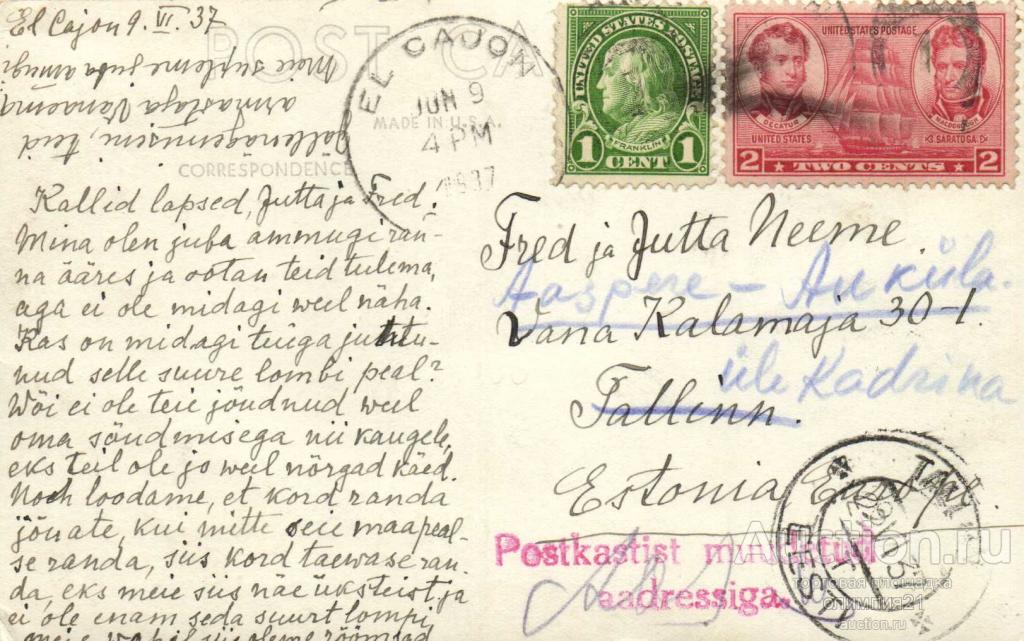 El Cajon 9. VI. 37
POST CA
CORRESPONDENCE
MADE IN U.S.A.
Kallid lapsed, Jutta ja Fred!
Mina olen juba ammugi ran-
na ääres ja ootan teid tulema,
aga ei ole midagi weel näha.
Kas on midagi teiega juhtu-
nud selle suure lombi peal?
Wõi ei ole teie jõudnud weel
oma sõudmisega nii kaugele,
eks teil ole jo weel nõrgad käed.
Noch loodame, et kord randa
jõuate, kui mitte seie maapeal-
se randa, siis kord taewase ran-
da, eks meie siis näe üksteist ja
ei ole enam seda suurt lompi
jällenägemiseni, teid
armastaja Wanaema
Moie supleme juba ammugi
EL CAJON
JUN 9
4 PM
1937
UNITED STATES POSTAGE
FRANKLIN
1 CENT 1
UNITED STATES POSTAGE
DECATUR
MACDONOUGH
UNITED STATES
SARATOGA
2 TWO CENTS 2
Fred ja Jutta Neeme.
Aaspere - Auküla.
Vana Kalamaja 30-1
üle Kadrina
Tallinn.
Estonia
TALL
EESTI
Postkastist muudetud
aadressiga.
Auction.ru
торговая площадка
олимпия21
auction.ru